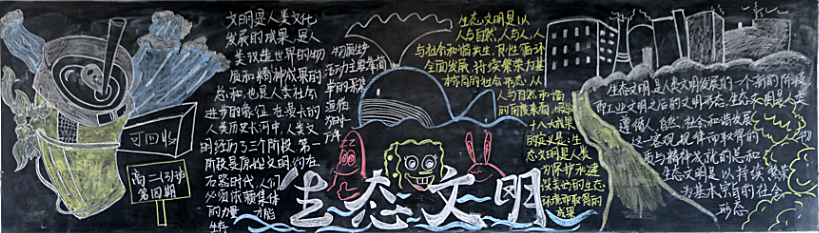 可回收
高二(3)班
第四期
文明是人类文化
发展的成果,是人
类改造世界的物
质和精神成果的
总和,也是人类社会
进步的象征。在漫长的
人类历史长河中,人类文
明经历了三个阶段。第一
阶段是原始文明。约在
石器时代,人们
必须依赖集体
的力量 才能
生存
物质生产
活动主要靠简
单的采集
渔猎
为时一
万年
生态文明是以
人与自然、人与人、人
与社会和谐共生、良性循环
全面发展、持续繁荣为基
本宗旨的社会形态。从
人与自然和谐
的角度来看,
十八大成果
的定义是:生
态文明是人类
为保护和建
设美好的生态
环境而取得的
成果
生态文明
生态文明是人类文明发展的一个新的阶段
即工业文明之后的文明形态;生态文明是人类
遵循人、自然、社会和谐发展
这一客观规律而取得的 物
质与精神成就的总和
生态文明是以 持续繁荣
为基本宗旨的社会
形态